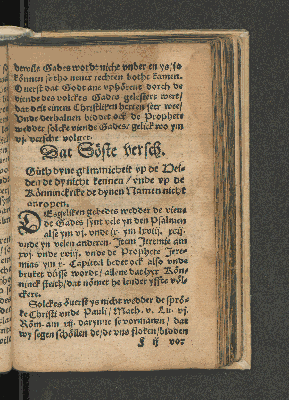 derwile Gades wordt nicht vnder en ys / so
können se tho neuer rechten bothe kamen.
Ouerst dat Godt ane vphörent dorch de
viende des volckes Gades gelestert wert /
dat deit einem Christliken herten seer wee /
Vnde derhaluen biddet ock de Prophete
wedder solcke viende Gades / gelick wo ym
vij. versche volget.
Dat Söste versch.
Güth dyne grimmicheit vp de Hei-
den de dy nicht kennen / vnde vp de
Könninckrike de dynen Namen nicht
anropen.
DErgeliken gebedes wedder de viende
de Gades synt vele yn den Psalmen
alse ym vij. vnde ix. ym lxviij.
vnde yn velen anderen. Item Jeremie am
xvij vnde xviij. vnde de Prophete Jere
mias ym x. Capittel bedet ock also vnde
bruket düsse wordt / allene dat he vor Kön-
ninck steit / dat nömet he lender vffte völ-
ckere.
Solckes överst ys nicht wedder de sprö-
ke Christi vnde Pauli / Math. v. Lu. vj.
Röm. am xij. darynne se vormanen / dat
wy segen schöllen de / de vns floken / bidden
F ij vor